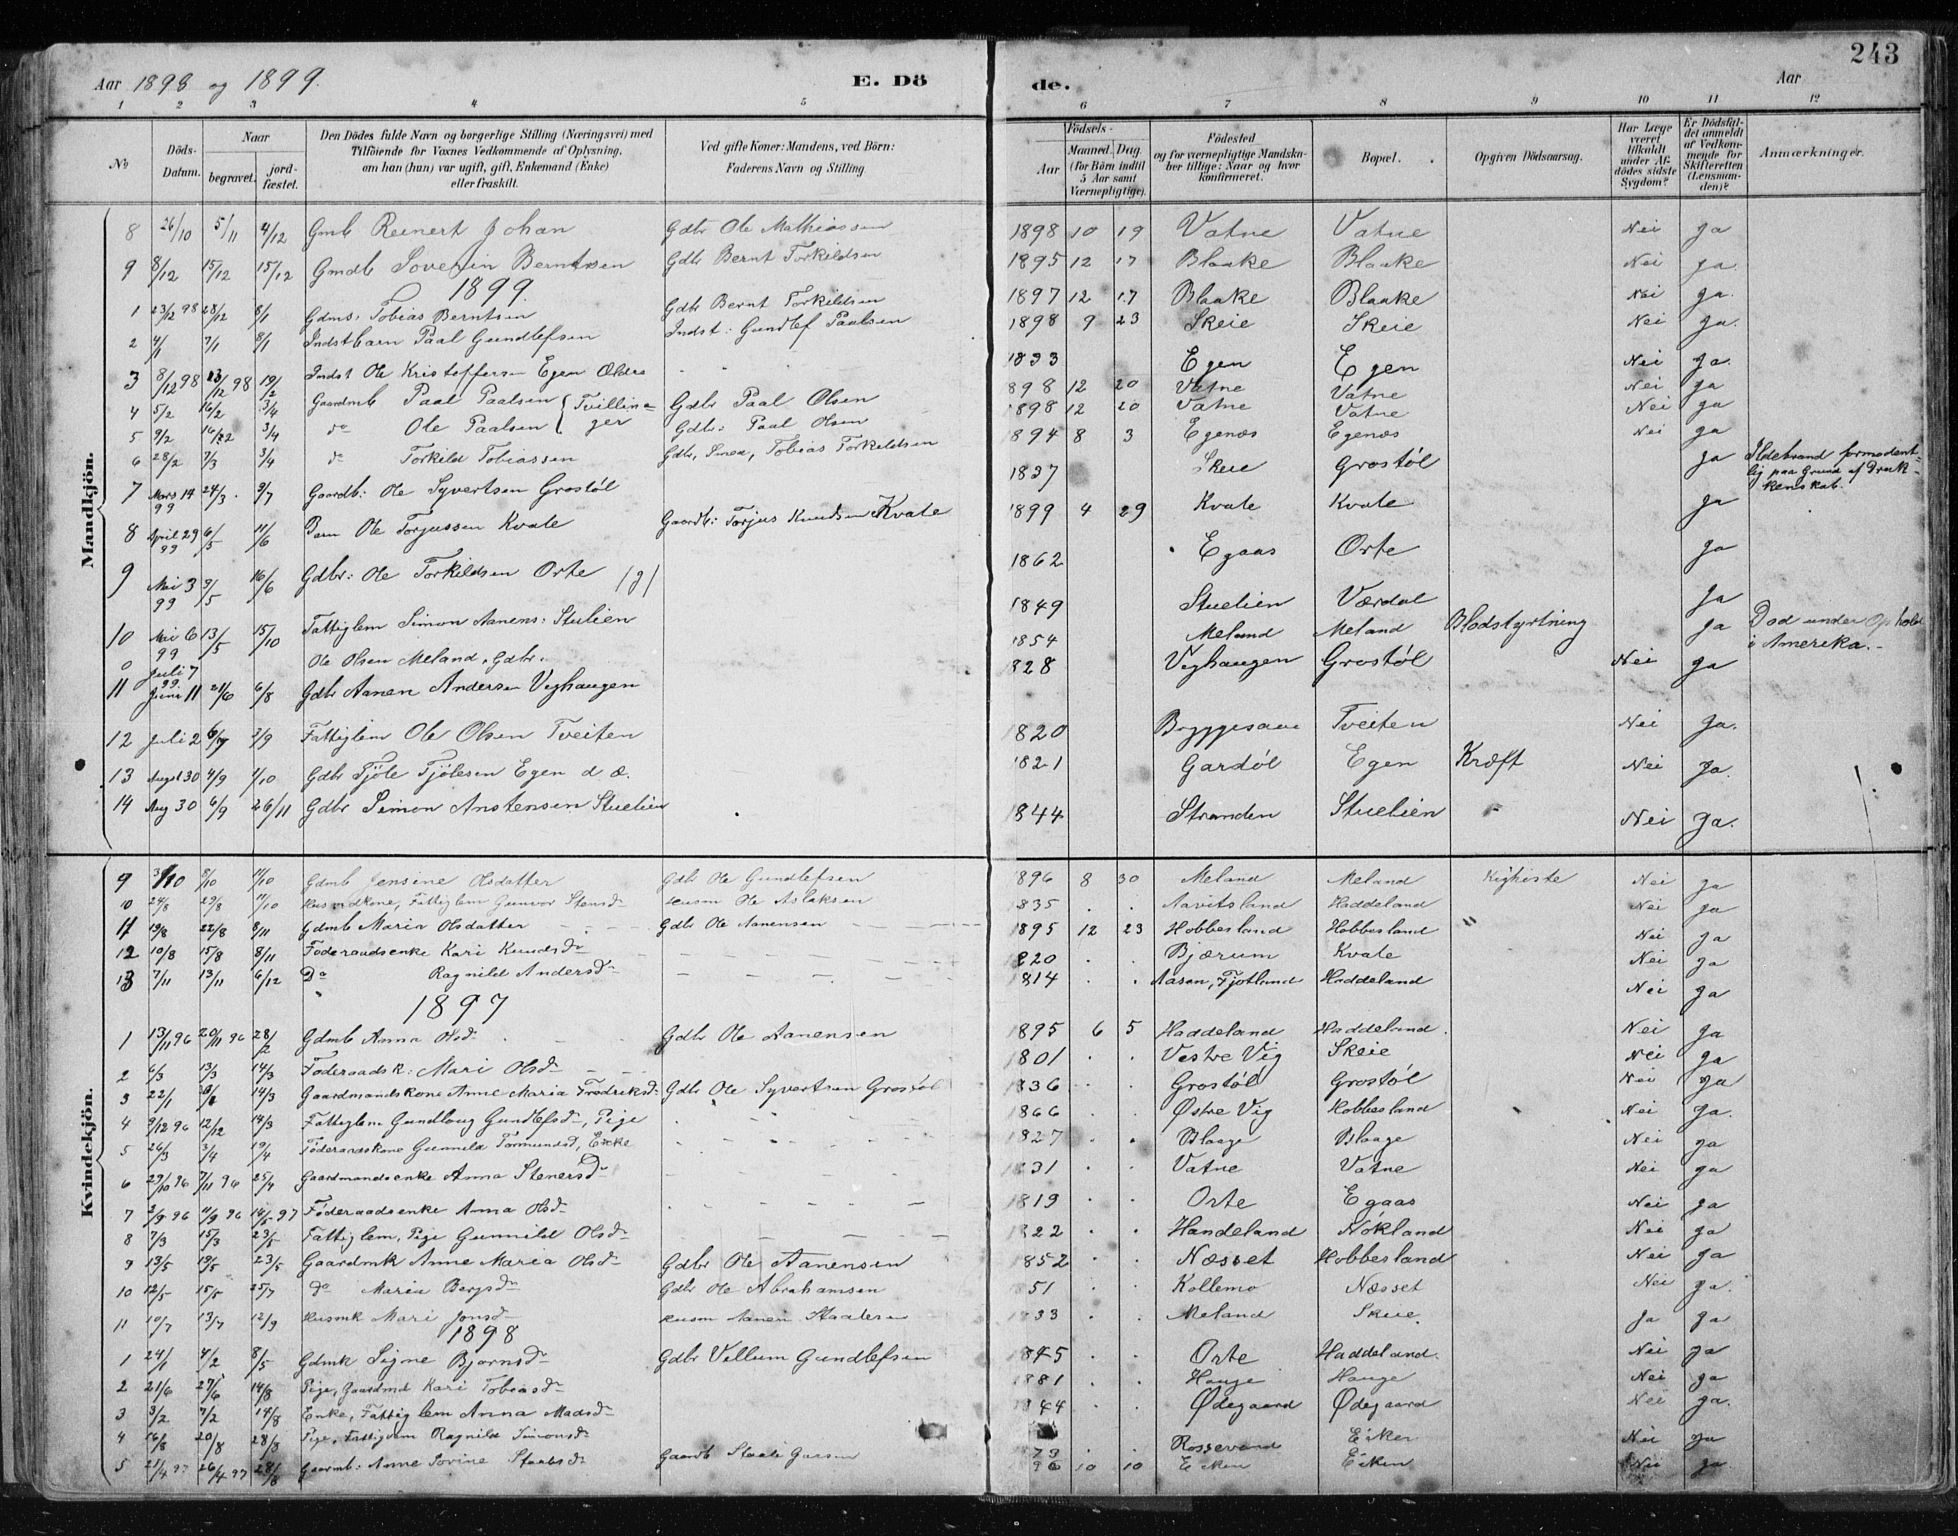 243
Aar 1898 og 1899. E. Dö de. Aar
1 2 3 4 5 6 7 8 9 10 11 12
No Döds-Datum. Naar begravet. jord-fæstet. Den Dödes fulde Navn og borgerlige Stilling (Næringsvei) med Tilföiende for Voxnes Vedkommende af Oplysning, om han (hun) var ugift, gift, Enkemand (Enke) eller fraskilt. Ved gifte Koner: Mandens, ved Börn: Faderens Navn og Stilling Födsels- Aar Maaned. Dag. (for Börn indtil 5 Aar samt Værnepligtige). Födested og for værnepligtige Mandska-ber tillige: Naar og hvor konfirmeret. Bopæl. Opgiven Dödsaarsag. Har Læge været tilkaldt under Af-dödes sidste Sygdom? Er Dödsfal-det anmeldt af Vedkom-mende for Skifteretten (Lensman-den)? Anmærkninger.
Mandkjön.
8 26/10 5/11 4/12 Gmb Reinert Johan Gdbr Ole Mathiassen 1898 10 19 Vatne Vatne Nei ja
9 8/12 15/12 15/12 Gmdb Soverin Berntsen Gdbr Bernt Torkildsen 1895 12 17 Blaake Blaake Nei ja.
1899.
1 23/12 98 28/12 8/1 Gdms. Tobias Berntsen Gdbr Bernt Torkildsen 1897 12 17 Blaake Blaake Nei ja.
2 4/1 7/1 8/1 Indstbarn Paal Gundlefsen Indst: Gundlef Paalsen 1898 9 23 Skeie Skeie Nei ja.
3 8/12 98 23/12 98 19/2 Indst Ole Kristoffersen Egen Ældre 1833 Egen Egen Nei ja.
4 5/2 16/2 3/4 Gaardmb Paal Paalsen { Tvillin= Gdbr Paal Olsen 898 12 20 Vatne Vatne Nei ja
5 9/2 16/22 3/4 do Ole Paalsen { ger Gdbr: Paal Olsen 1898 12 20 Vatne Vatne Nei ja
6 28/2 7/3 3/4 do Torkild Tobiassen Gdbr, Tobias Torkildsen 1894 8 3 Egenæs Egenæs Nei ja
7 Mars 14 99 24/3 9/7 Gaardb: Ole Syvertsen Grostøl 1837 Skeie Grostøl ja Ildebrand formodent-lig paa Grund af Druk-kenskab.
8 April 29 99 6/5 11/6 Barn Ole Torjussen Kvale Gaardb: Torjus Knudsen Kvate 1899 4 29 Kvate Kvate ja
9 Mai 3 99 9/5 16/6 Gdbr: Ole Torkildsen Orte /g/ 1862 Egaas Orte ja
10 Mai 6 99 13/5 15/10 Fattiglem Simon Aanens: Stulien 1849 Stuelien Værdal ja
0 Juli 7 99. Ole Olsen Meland, Gdbr. 1854 Meland Meland Blodstyrtning ja Død under Ophold i Amerika.
11 Juni 11 21/6 6/8 Gdbr Aanen Andersen Veghaugen 828 Veghaugen Grostøl Nei ja
12 Juli 2 6/7 3/9 Fattiglem Ole Olsen Tveiten 1820 Bryggesaae Tveiten Nei ja.
13 Augst 30 4/9 1/10 Gdbr Tjøle Tjølesen Egen d. æ. 1821 Gardøl Egen Kræft Nei ja.
14 Aug 30 6/9 26/11 Gdbr Simon Anstensen Stuelien 1844 Stranden Stuelien Nei ja.
Kvindekjön.
9 3/10 8/10 11/10 Gdmb Jensine Olsdatter Gdbr Ole Gundlefsen 1896 8 30 Meland Meland Kighoste Nei ja
10 24/8 29/8 11/10 Husmdkone, Fattiglem Gunvor Stensdr Husm Ole Aslaksen 835 Aavitsland Haddeland Nei ja
11 19/8 22/8 8/11 Gdmb Maria Olsdatter Gdbr Ole Aanensen 1895 12 23 Hobbesland Hobbesland Nei ja
12 10/8 15/8 8/11 Føderaadsenke Kari Knudsdr 820 Bjærum Kvate Nei ja
13 7/11 13/11 6/12 Do Ragnild Andersdr 1814 Aasen, Fjotland Haddeland Nei ja
1897
1 13/11 96 20/11 96 28/2 Gdmb Anna Olsdr Gdbr Ole Aanensen 1895 6 5 Haddeland Haddeland Nei ja
2 6/3 13/3 14/3 Føderaadsk: Mari Olsdr 1801 Vestre Vig Skeie Nei ja
3 22/1 14/3 Gaardmandskone Anne Maria Fredriksdr Gdbr Ole Syvertsen Grostøl 1836 Grostøl Grostøl Nei ja
4 9/12 96 12/12 14/3 Fattiglem Gundloug Gundlefsdr, Pige 1866 Østre Vig Hobbesland Nei ja.
5 26/3 3/4 19/4 Føderaadskone Gunnild Tormundsd, Enke 1827 Blaage Blaage Nei ja
6 29/10 96 7/11 96 25/4 Gaardmandsenke Anna Stenersdr 1831 Vatne Vatne Nei ja
7 3/9 96 11/9 96 14/5 97 Føderaadsenke Anna Olsdr 1819 Orte Egaas Nei ja
8 7/3 15/3 23/5 Fattiglem, Pige Gunnild Olsdr 1822 Handeland Nökland Nei ja
9 13/5 19/5 23/5 Gaardmk Anne Maria Olsdr Gdbr Ole Aanensen 1852 Næsset Hobbesland Nei ja
10 12/5 15/5 25/7 do Maria Bergsdr Gdbr Ole Abrahamsen 51 Kollemo Næsset Nei ja.
11 10/7 13/7 12/9 Husmk Mari Jonsdr Husm Aanen Staalesen 33 Meland Skeie. Ja ja
1898
1 24/1 4/2 8/5 Gdmk Signe Bjornsdr Gdbr Villum Gundlefsen 1845 Orte Haddeland. Nei ja
2 21/6 27/6 14/8 Pige, Gaardmd Kari Tobiasdr 1881 Hauge Hauge Nei ja
3 3/2 7/2 14/8 Enke, Fattiglem Anna Madsdr 1844 Ødegaard Ødegaard Nei ja.
4 16/8 20/8 28/8 Pige, Fattiglem Ragnild Simonsdr 73 Rossevand Eiken Nei ja
5 21/4 97 26/4 97 28/8 Gaarmb: Anne Sovine Staalsdr Gaardb Staale 96 10 10 Eiken Eiken Nei ja.